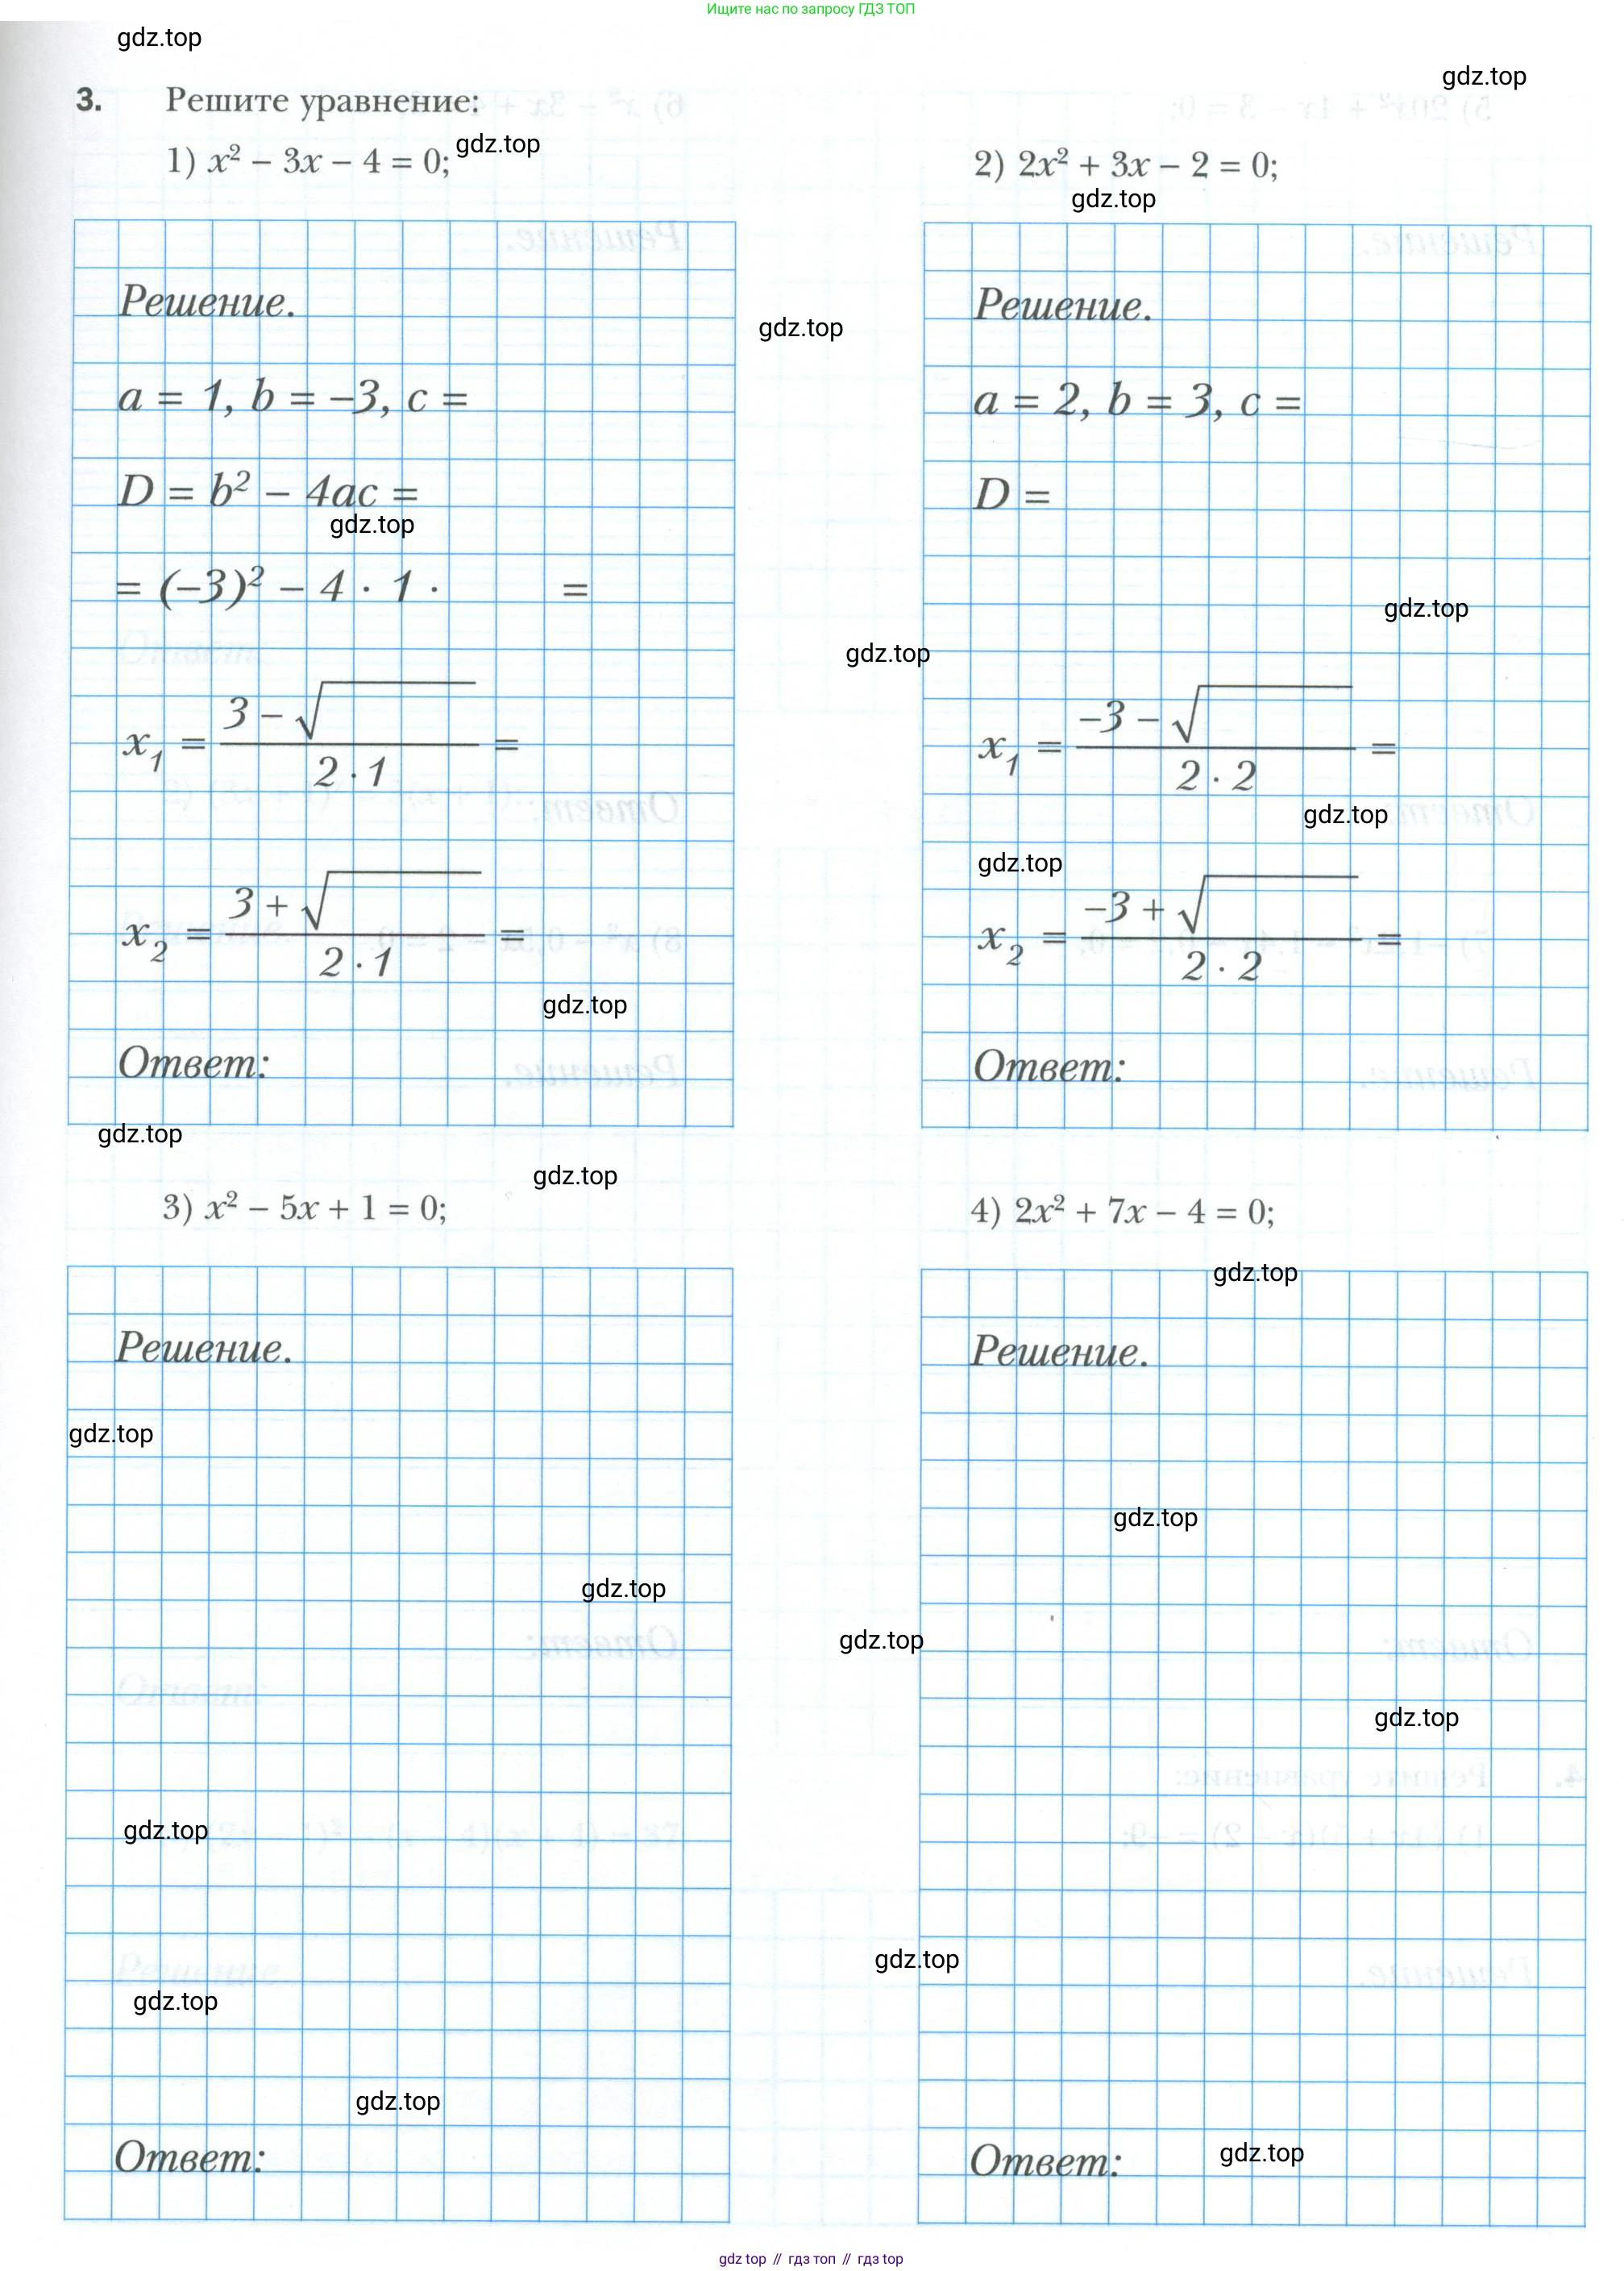 Ищите нас по запросу ГДЗ ТОП
gdz.top
gdz.top
3. Решите уравнение:
1) x² − 3x − 4 = 0;
gdz.top
2) 2x² + 3x − 2 = 0;
gdz.top
Решение.
a = 1, b = −3, c =
D = b² − 4ac =
gdz.top
= (−3)² − 4 · 1 · =
x₁ = (3 − √ )/(2 · 1) =
x₂ = (3 + √ )/(2 · 1) =
gdz.top
Ответ:
gdz.top
gdz.top
gdz.top
Решение.
a = 2, b = 3, c =
D =
gdz.top
x₁ = (−3 − √ )/(2 · 2) =
gdz.top
gdz.top
x₂ = (−3 + √ )/(2 · 2) =
Ответ:
gdz.top
gdz.top
3) x² − 5x + 1 = 0;
4) 2x² + 7x − 4 = 0;
gdz.top
Решение.
gdz.top
gdz.top
gdz.top
gdz.top
gdz.top
Ответ:
gdz.top
gdz.top
Решение.
gdz.top
gdz.top
Ответ:
gdz.top
gdz top // гдз топ // гдз top